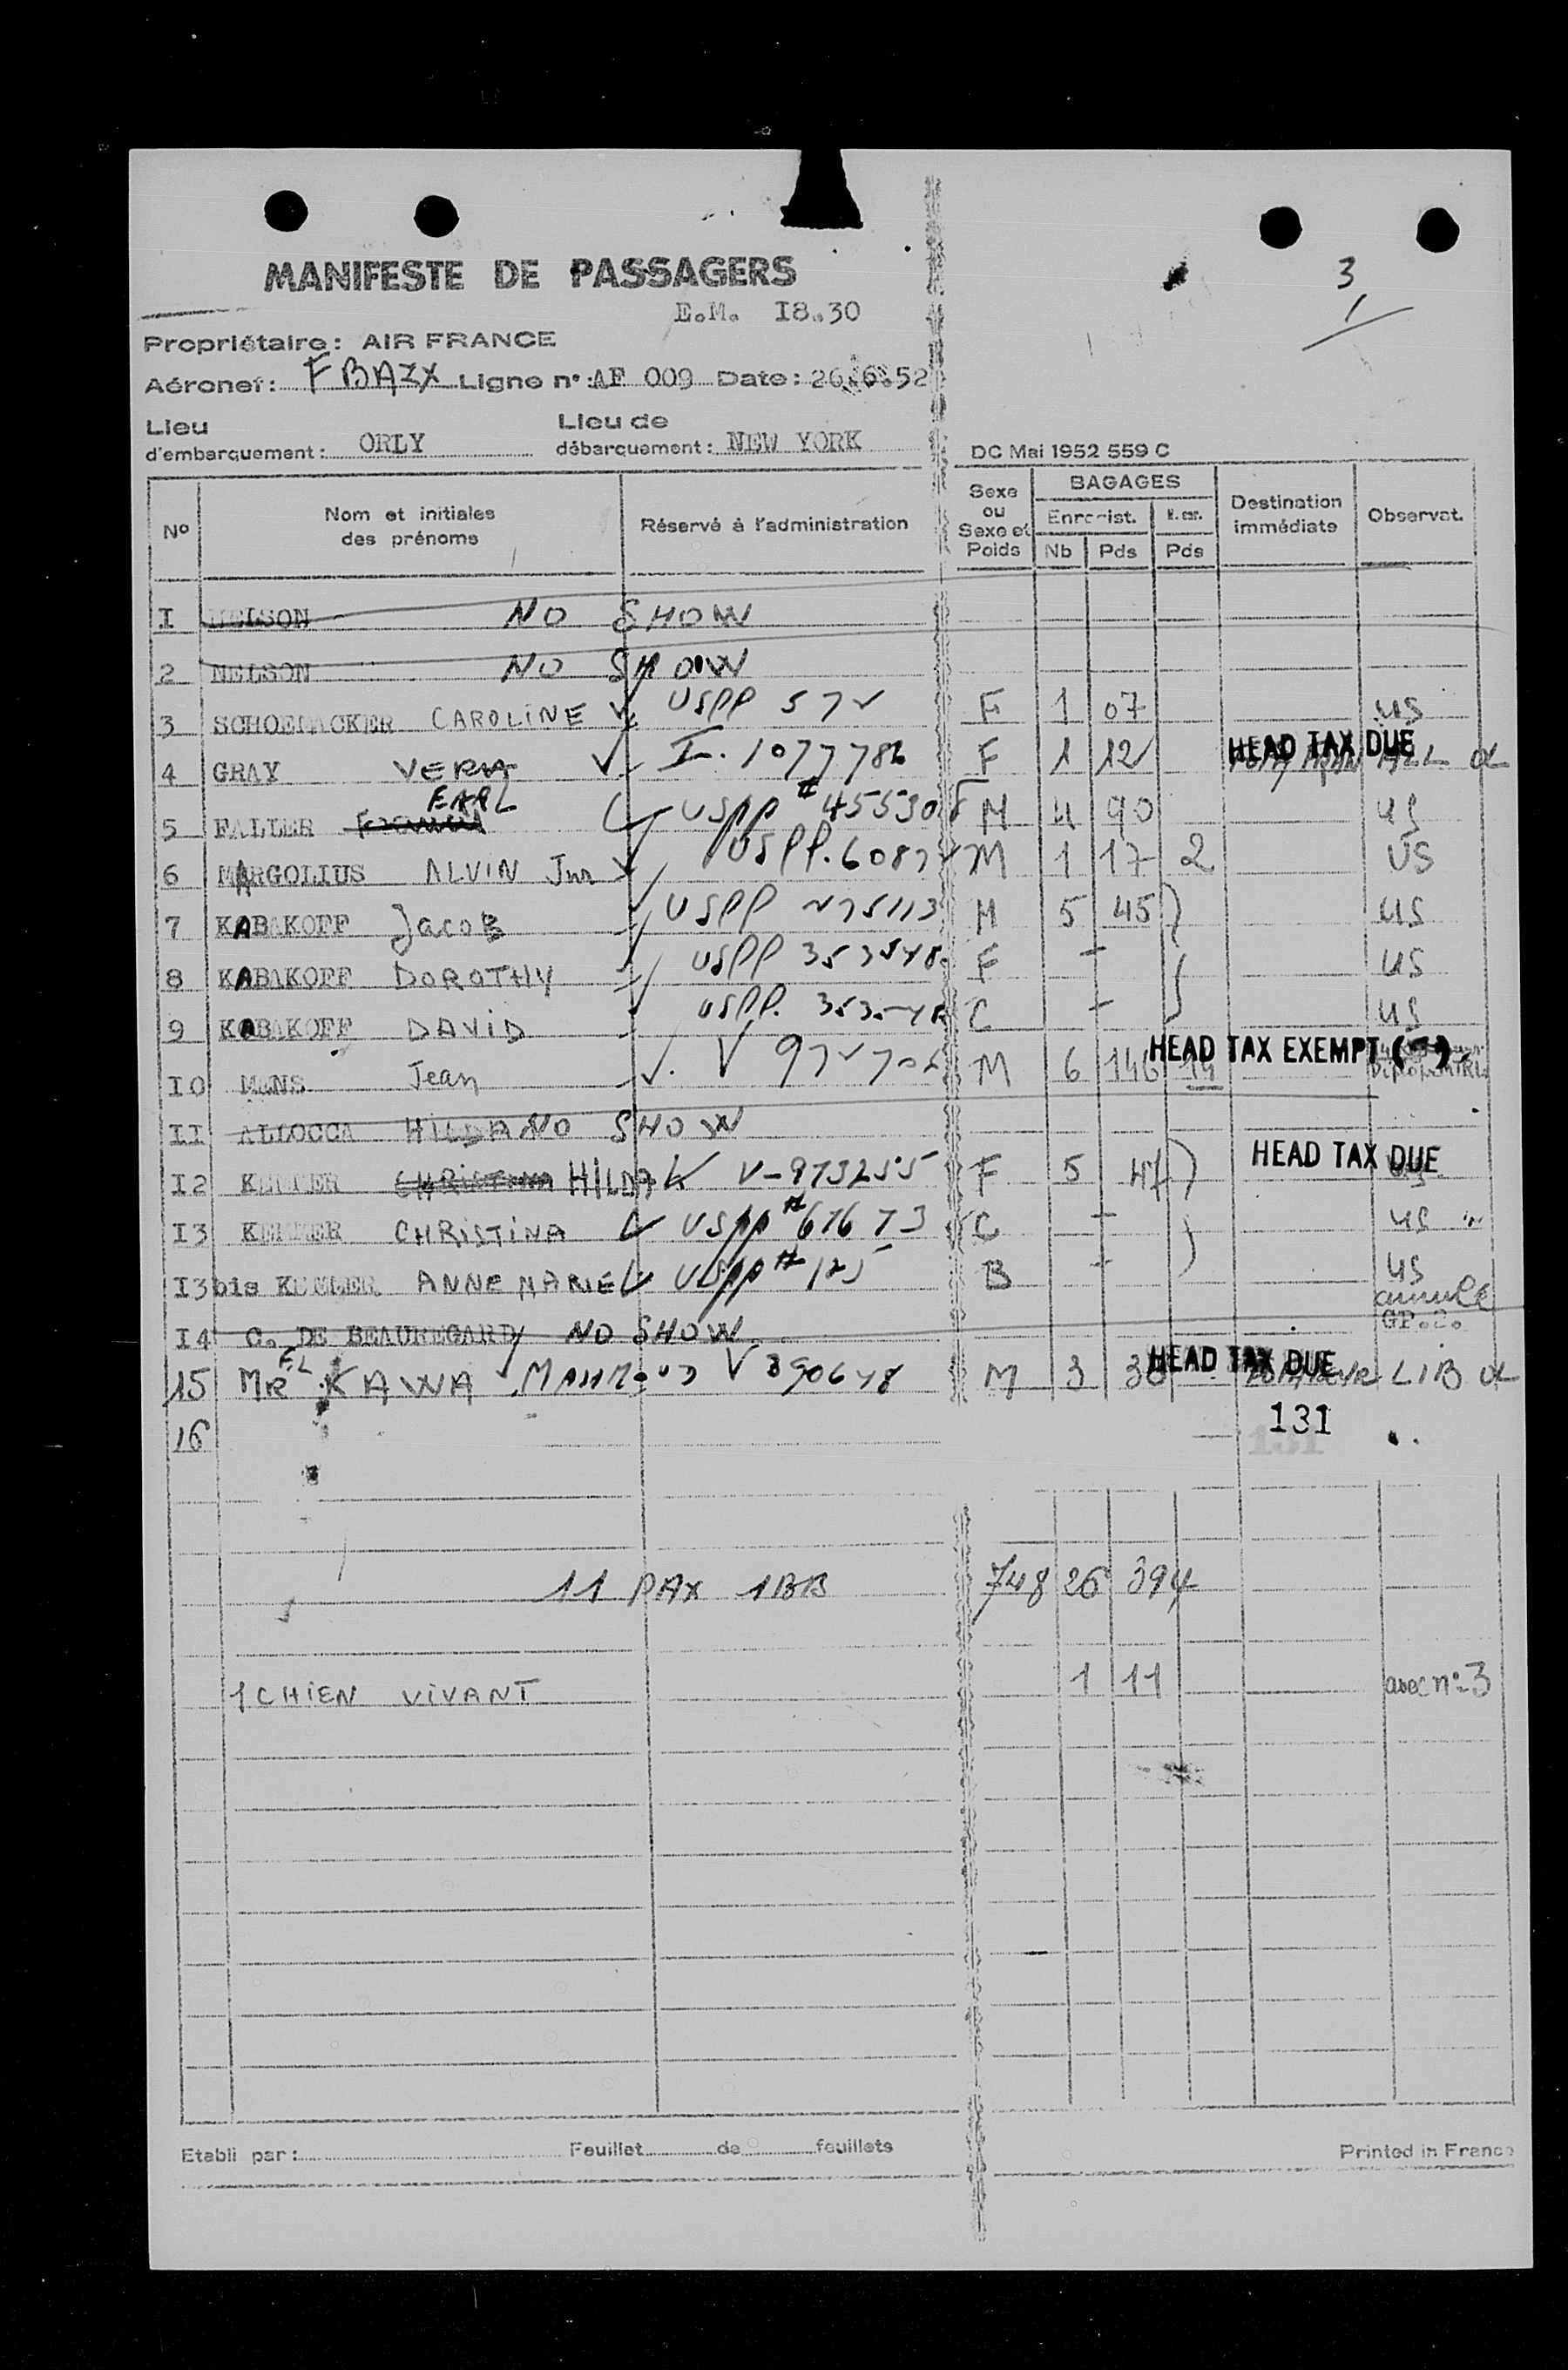 3
1
MANIFESTE DE PASSAGERS
E.M. I8.30
Propriétaire: AIR FRANCE
Aéronef: F BAZX Ligne n°: AF 009 Date: 26.6.52
Lieu d'embarquement: ORLY Lieu de débarquement: NEW YORK
DC Mai 1952 559 C
N° Nom et initiales des prénoms Réservé à l'administration Sexe ou Sexe et Poids BAGAGES Enregist. Nb Pds Pds Destination immédiate Observat.
I NELSON NO SHOW
2 NELSON NO SHOW
3 SCHOEMACKER CAROLINE USPP F 1 07 US
4 GRAY VERA I-. 1077786 F 1 12 HEAD TAX DUE
5 FALLER EARL USPP # 45530 M 4 90 US
6 MARGOLIUS ALVIN Jnr USPP. M 1 17 2 US
7 KABAKOFF JacoB USPP M 5 45 US
8 KABAKOFF DOROTHY USPP F - US
9 KABAKOFF DAVID USPP. C - US
I0 Jean V M 6 146 14 HEAD TAX EXEMPT
II ALLOCCA HILDA NO SHOW
I2 HILDA V-973255 F 5 47 HEAD TAX DUE
I3 CHRISTINA USPP # 67673 C - US "
I3bis ANNE MARIE USPP # B - US
annulé
I4 C. DE BEAUREGARD NO SHOW GP.
15 MR EL KAWA MAHMOUD V 890648 M 3 30 HEAD TAX DUE LIB
16 131
11 PAX 1BB 748 26 394
1 CHIEN VIVANT 1 11 avec n° 3
Etabli par: Feuillet de feuillets Printed in France